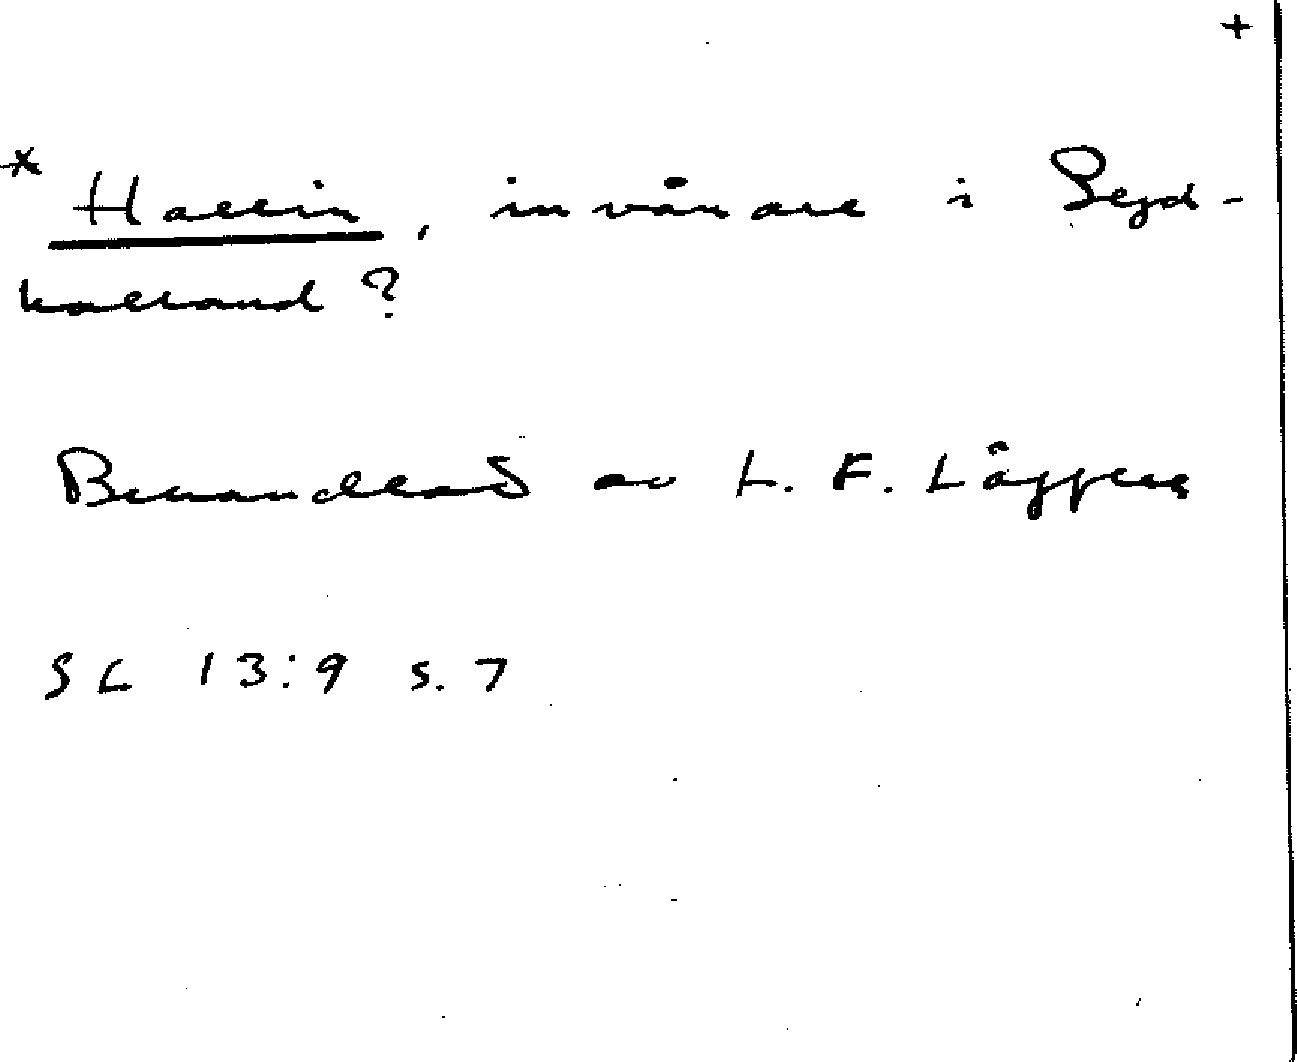 +
* Hallin, invånare i Syd-
halland?
Behandlad av L. F. Läffler
SL 13:9 s. 7